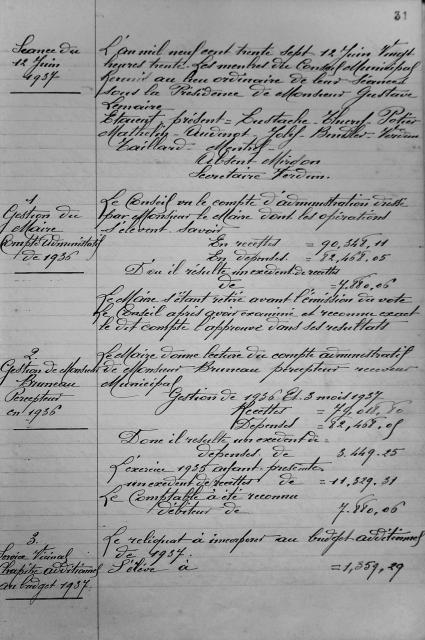 31
Séance du
12 Juin
1937
L'an mil neuf cent trente sept 12 Juin Vingt
heures trente. Les membres du Conseil Municipal
réunis au lieu ordinaire de leur Séances
sous la Présidence de Monsieur Gustave
Lemaire
Etaient présent = Eustache
Mathelin - Audinot - Verdun
Gaillard
Absent
Secrétaire Verdun.
1
Gestion du
Maire
Compte Administratif
de 1936
Le Conseil vu le compte d'administration dressé
par Monsieur le Maire dont les opérations
s'élèvent savoir
En recettes = 90,348,11
En dépenses = 82,468.05
D'ou il résulte un exedent de recettes
de = 7.880,06
Le Maire s'étant retiré avant l'émission du vote
Le Conseil après avoir examiné et reconnu exact
le dit compte l'approuve dans ses resultats
2
Gestion de Monsieur
Bruneau
Percepteur
en 1936
Le Maire donne lecture du compte administratif
de Monsieur Bruneau percepteur receveur
Municipal
Gestion de 1936 Et 3 mois 1937
Recettes = 79,018,80
Dépenses = 82,468,05
Donc il resulte un exedent de
dépenses de 3.449.25
L'exercice 1935 ayant présenté
un exedent de recettes de = 11,329.31
Le Comptable a été reconnu
débiteur de 7.880,06
3
Service Vicinal
Chapitre additionnel
au budget 1937
Le reliquat à incorporer au budget additionnel
de 1937
S'élève à = 1,359,29